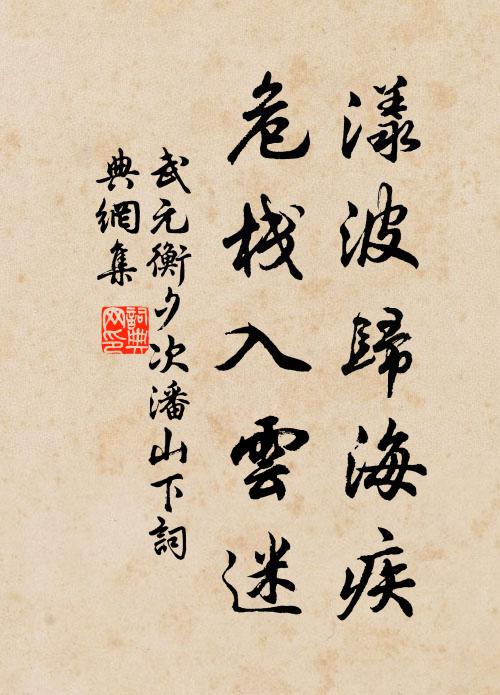 漾波歸海疾
危棧入雲迷
武元衡夕次潘山下詞
典網集
詞典
网印